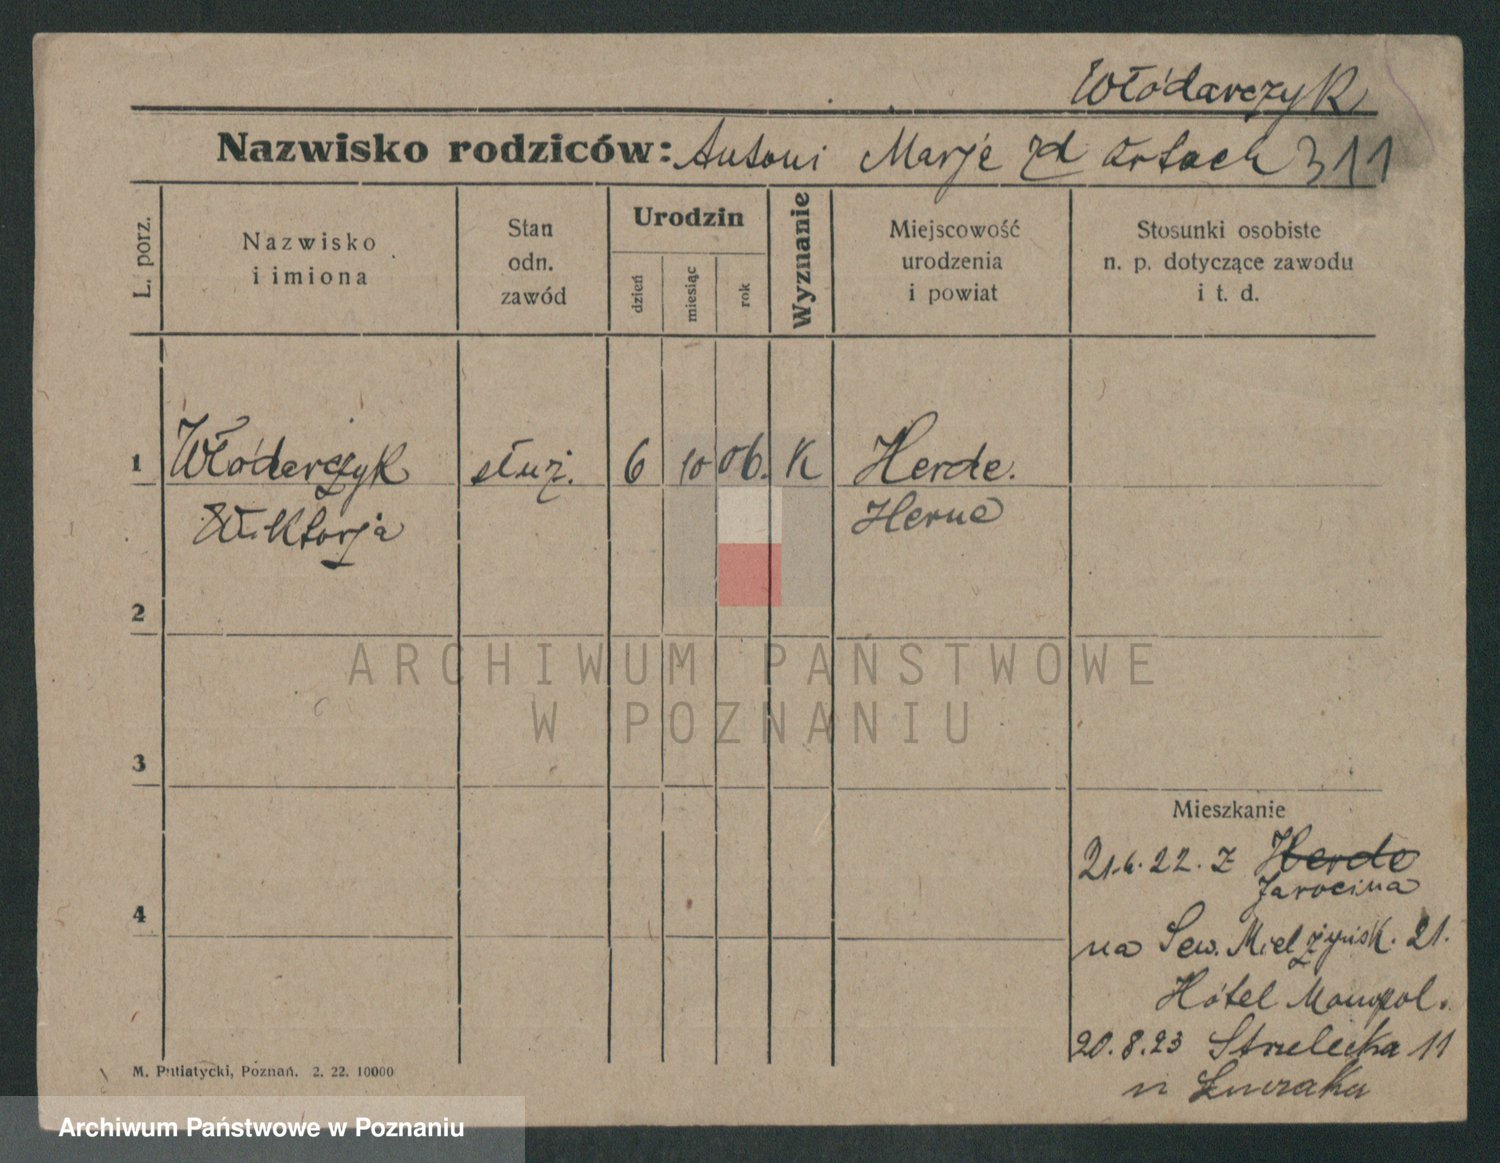 Włódarczyk
Nazwisko rodziców: Antoni Marje zd 311
L. porz.
Nazwisko
i imiona
Stan
odn.
zawód
Urodzin
dzień
miesiąc
rok
Wyznanie
Miejscowość
urodzenia
i powiat
Stosunki osobiste
n. p. dotyczące zawodu
i t. d.
1 Włódarczyk służ. 6 10 06. K Herde.
Wiktorja Herne
2
3
4
Mieszkanie
21.6.22. z Herde
Jarocina
na Sew. Mielżyńsk. 21.
Hótel Monopol.
20.8.23 Strzelecka 11
M. Putiatycki, Poznań. 2. 22. 10000
ARCHIWUM PAŃSTWOWE
W POZNANIU
Archiwum Państwowe w Poznaniu